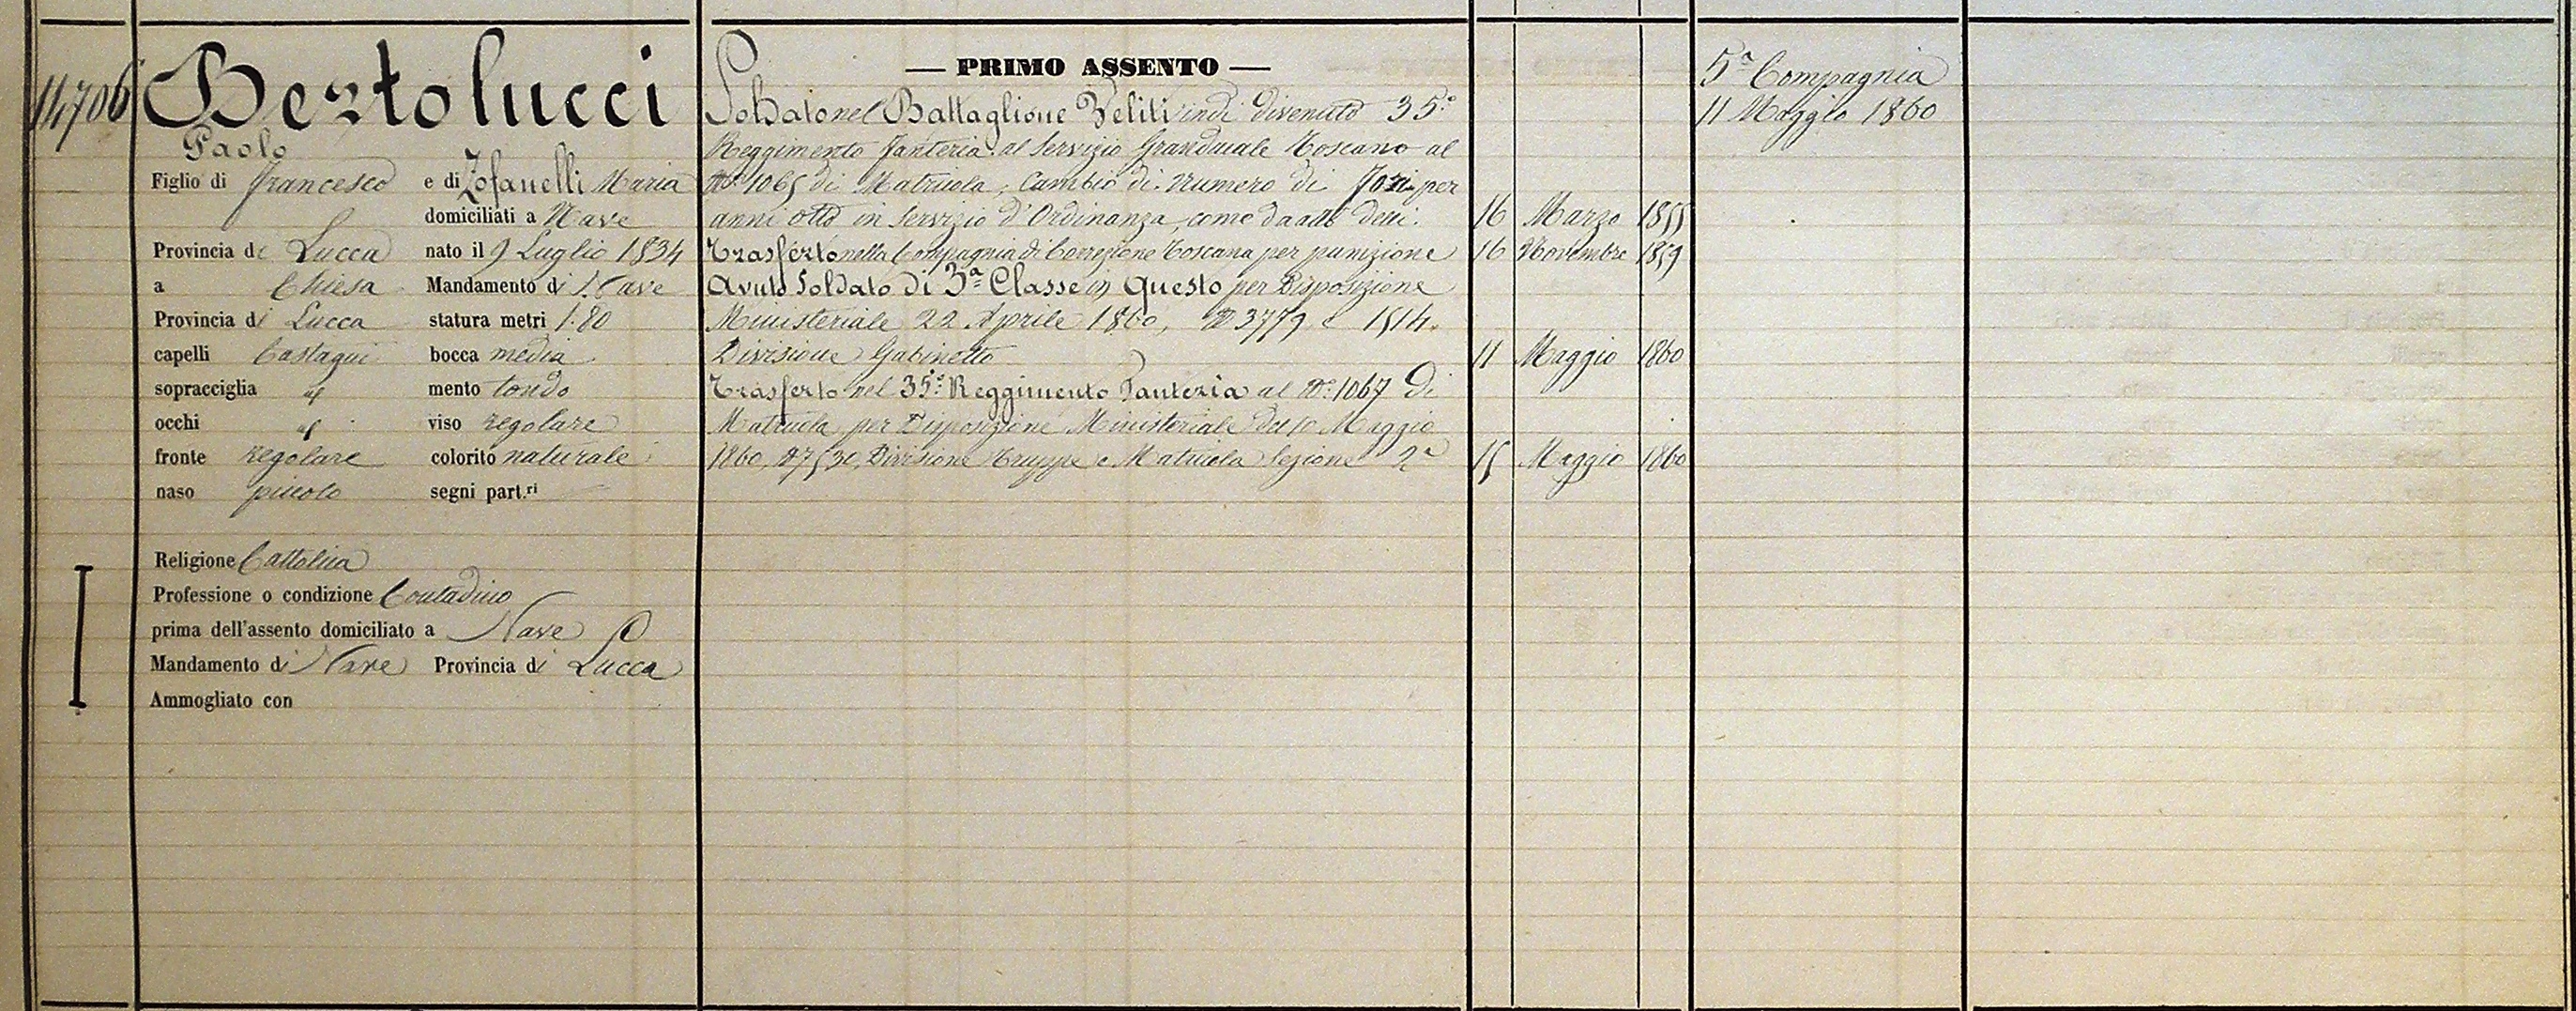 14706
Bertolucci
Paolo
Figlio di Francesco e di Zofanelli Maria
domiciliati a Nave
Provincia di Lucca nato il 9 Luglio 1834
a Chiesa Mandamento di Nave
Provincia di Lucca statura metri 1.80
capelli Castagni bocca media
sopracciglia id mento tondo
occhi id viso regolare
fronte regolare colorito naturale
naso piccolo segni part.ri
Religione Cattolica
Professione o condizione Contadino
prima dell'assento domiciliato a Nave
Mandamento di Nave Provincia di Lucca
Ammogliato con
— PRIMO ASSENTO —
Soldato nel Battaglione Veliti indi divenuto 35.°
Reggimento Fanteria al Servizio Granducale Toscano al
N.° 1065 di Matricola, Cambio di Numero di per
anni otto in Servizio d'Ordinanza, come da atti 16 Marzo 1855
Trasferto nella Compagnia di Correzione Toscana per punizione 16 Novembre 1859
Avuto Soldato di 3.a Classe in Questo per Disposizione
Ministeriale 22 Aprile 1860, N 3779 e 1514.
Divisione Gabinetto 11 Maggio 1860
Trasferto nel 35.° Reggimento Fanteria al N.° 1067 di
Matricola per Disposizione Ministeriale del 10 Maggio
1860, N 7530, Divisione Truppe e Matricola Sezione 2a 15 Maggio 1860
5a Compagnia
11 Maggio 1860